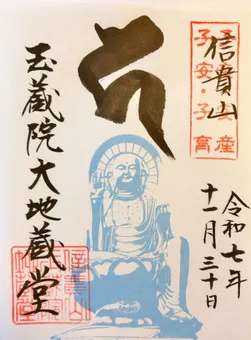 信貴山
安産
子安・子育
令和七年
十一月三十日
玉蔵院大地蔵堂